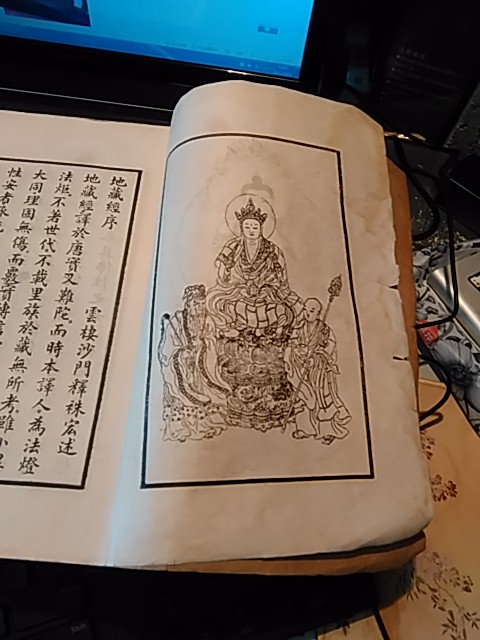 地藏經序
雲棲沙門釋袾宏述
地藏經譯於唐實叉難陀而時本譯人為法燈
法炬不著世代不載里族於藏無所考雖小異
大同理固無傷而覈實傳信